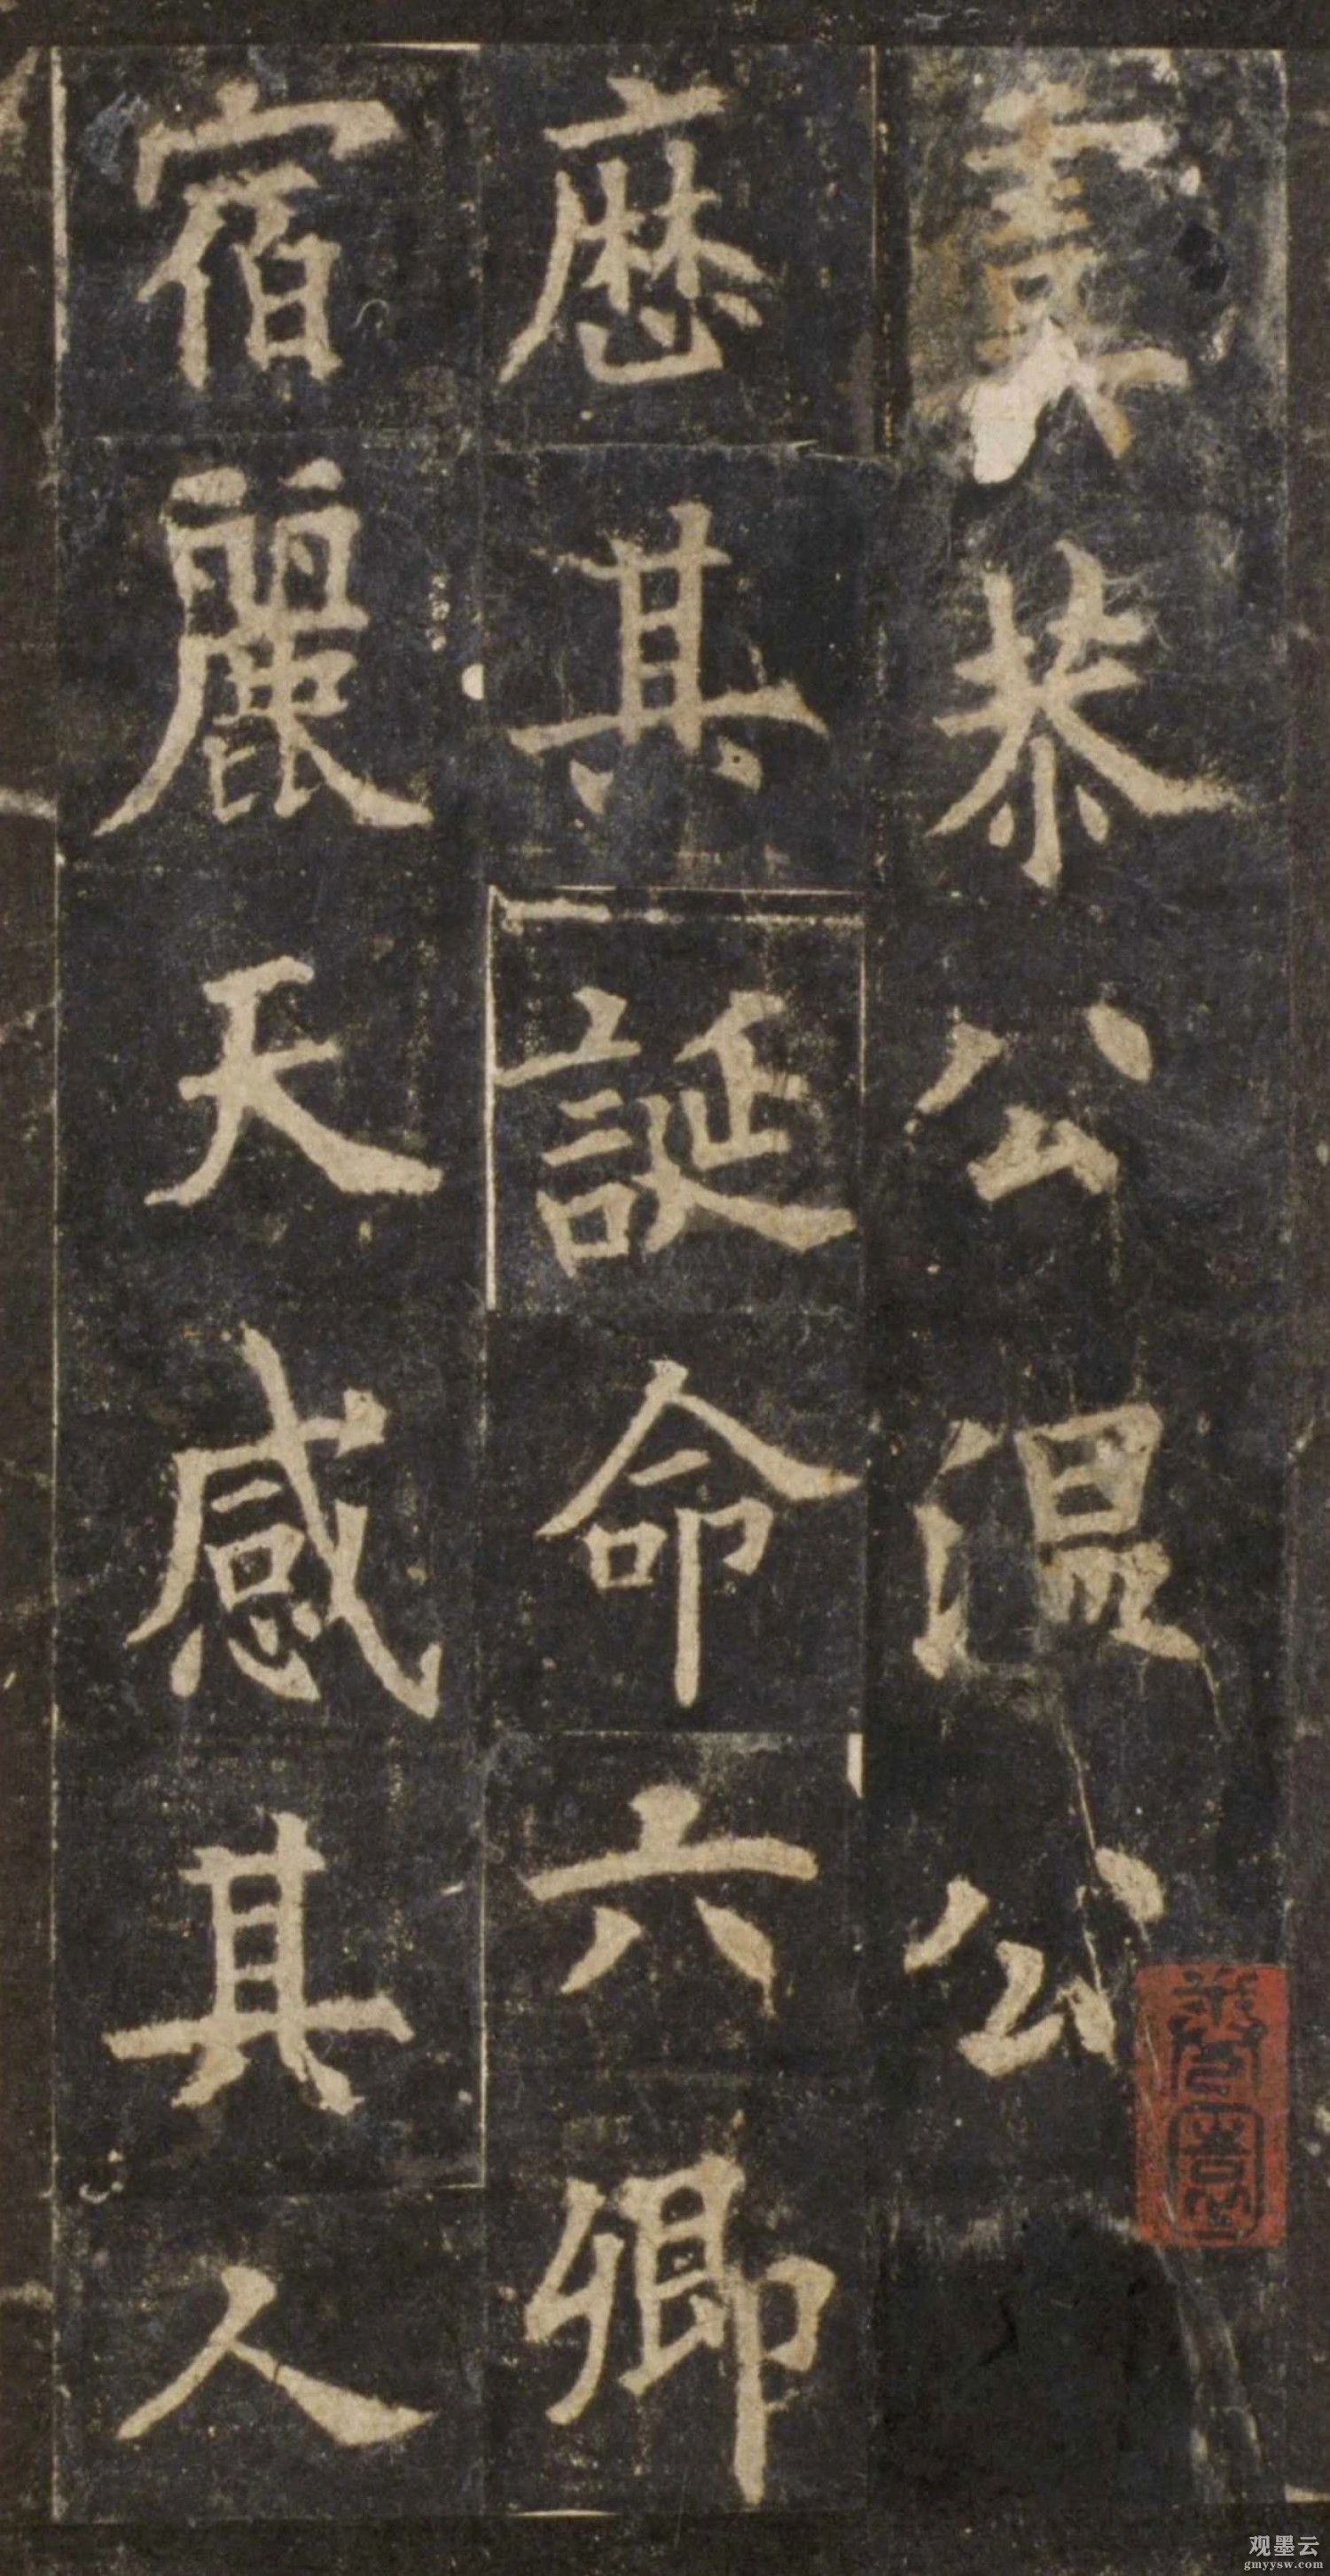 虞恭公溫公
其誕命六卿
宿麗天感其人
观墨云
gmyysw.com